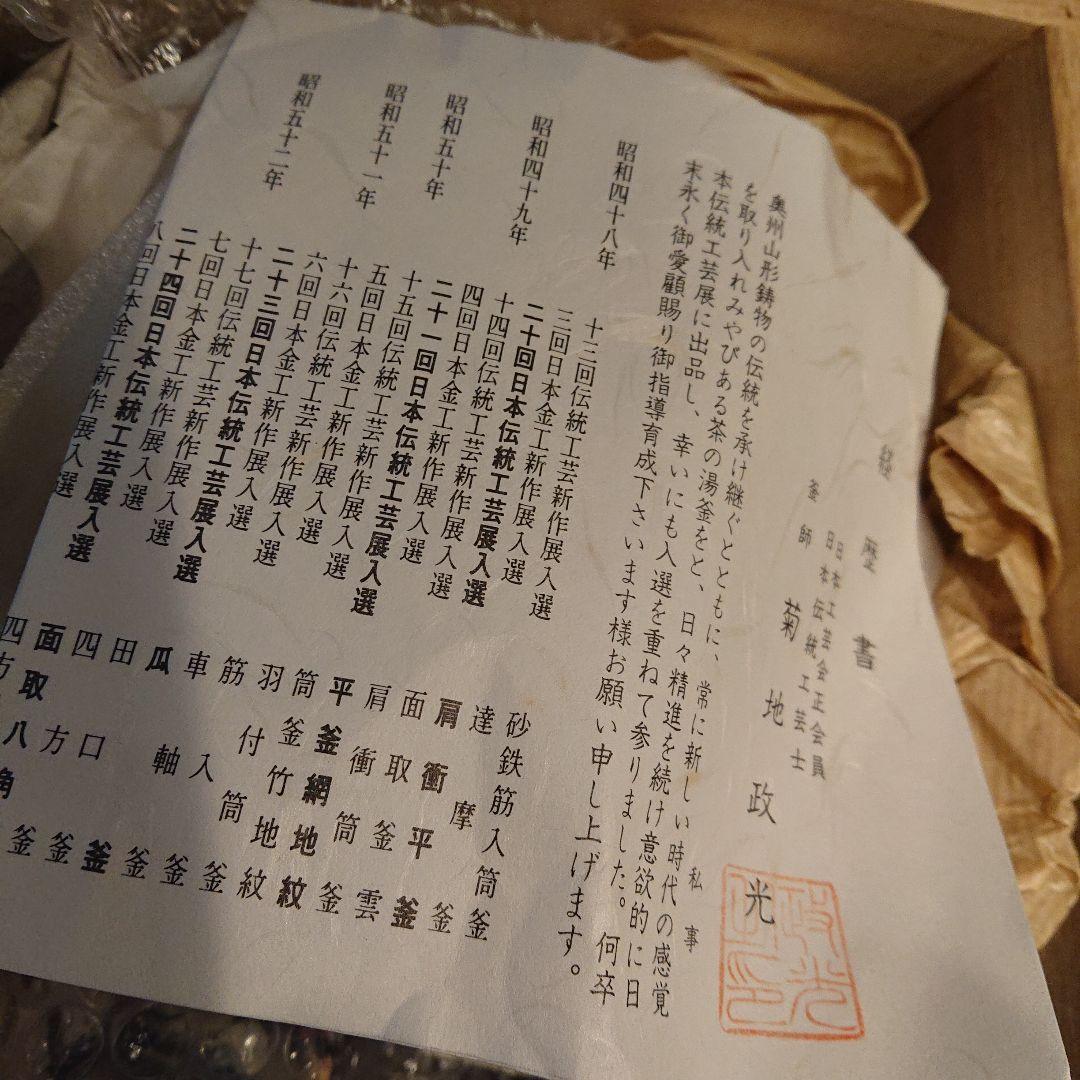 経歴書
日本工芸会正会員
日本伝統工芸士
釜師 菊地政光
私事
奥州山形鋳物の伝統を承け継ぐとともに、常に新しい時代の感覚
を取り入れみやびある茶の湯釜をと、日々精進を続け意欲的に日
本伝統工芸展に出品し、幸いにも入選を重ねて参りました。何卒
末永く御愛顧賜り御指導育成下さいます様お願い申し上げます。
昭和四十八年 十三回伝統工芸新作展入選 砂鉄筋入筒釜
三回日本金工新作展入選 達摩釜
二十回日本伝統工芸展入選 肩衝平釜
昭和四十九年 十四回伝統工芸新作展入選 面取釜雲
四回日本金工新作展入選 肩衝筒釜
二十一回日本伝統工芸展入選 平釜網地紋
昭和五十年 十五回伝統工芸新作展入選 筒釜竹地紋
五回日本金工新作展入選 羽付筒釜
昭和五十一年 十六回伝統工芸新作展入選 筋入釜
六回日本金工新作展入選 車軸釜
二十三回日本伝統工芸展入選 瓜釜
昭和五十二年 十七回伝統工芸新作展入選 田口釜
七回日本金工新作展入選 四方釜
二十四回日本伝統工芸展入選 面取八角
八回日本金工新作展入選 四方